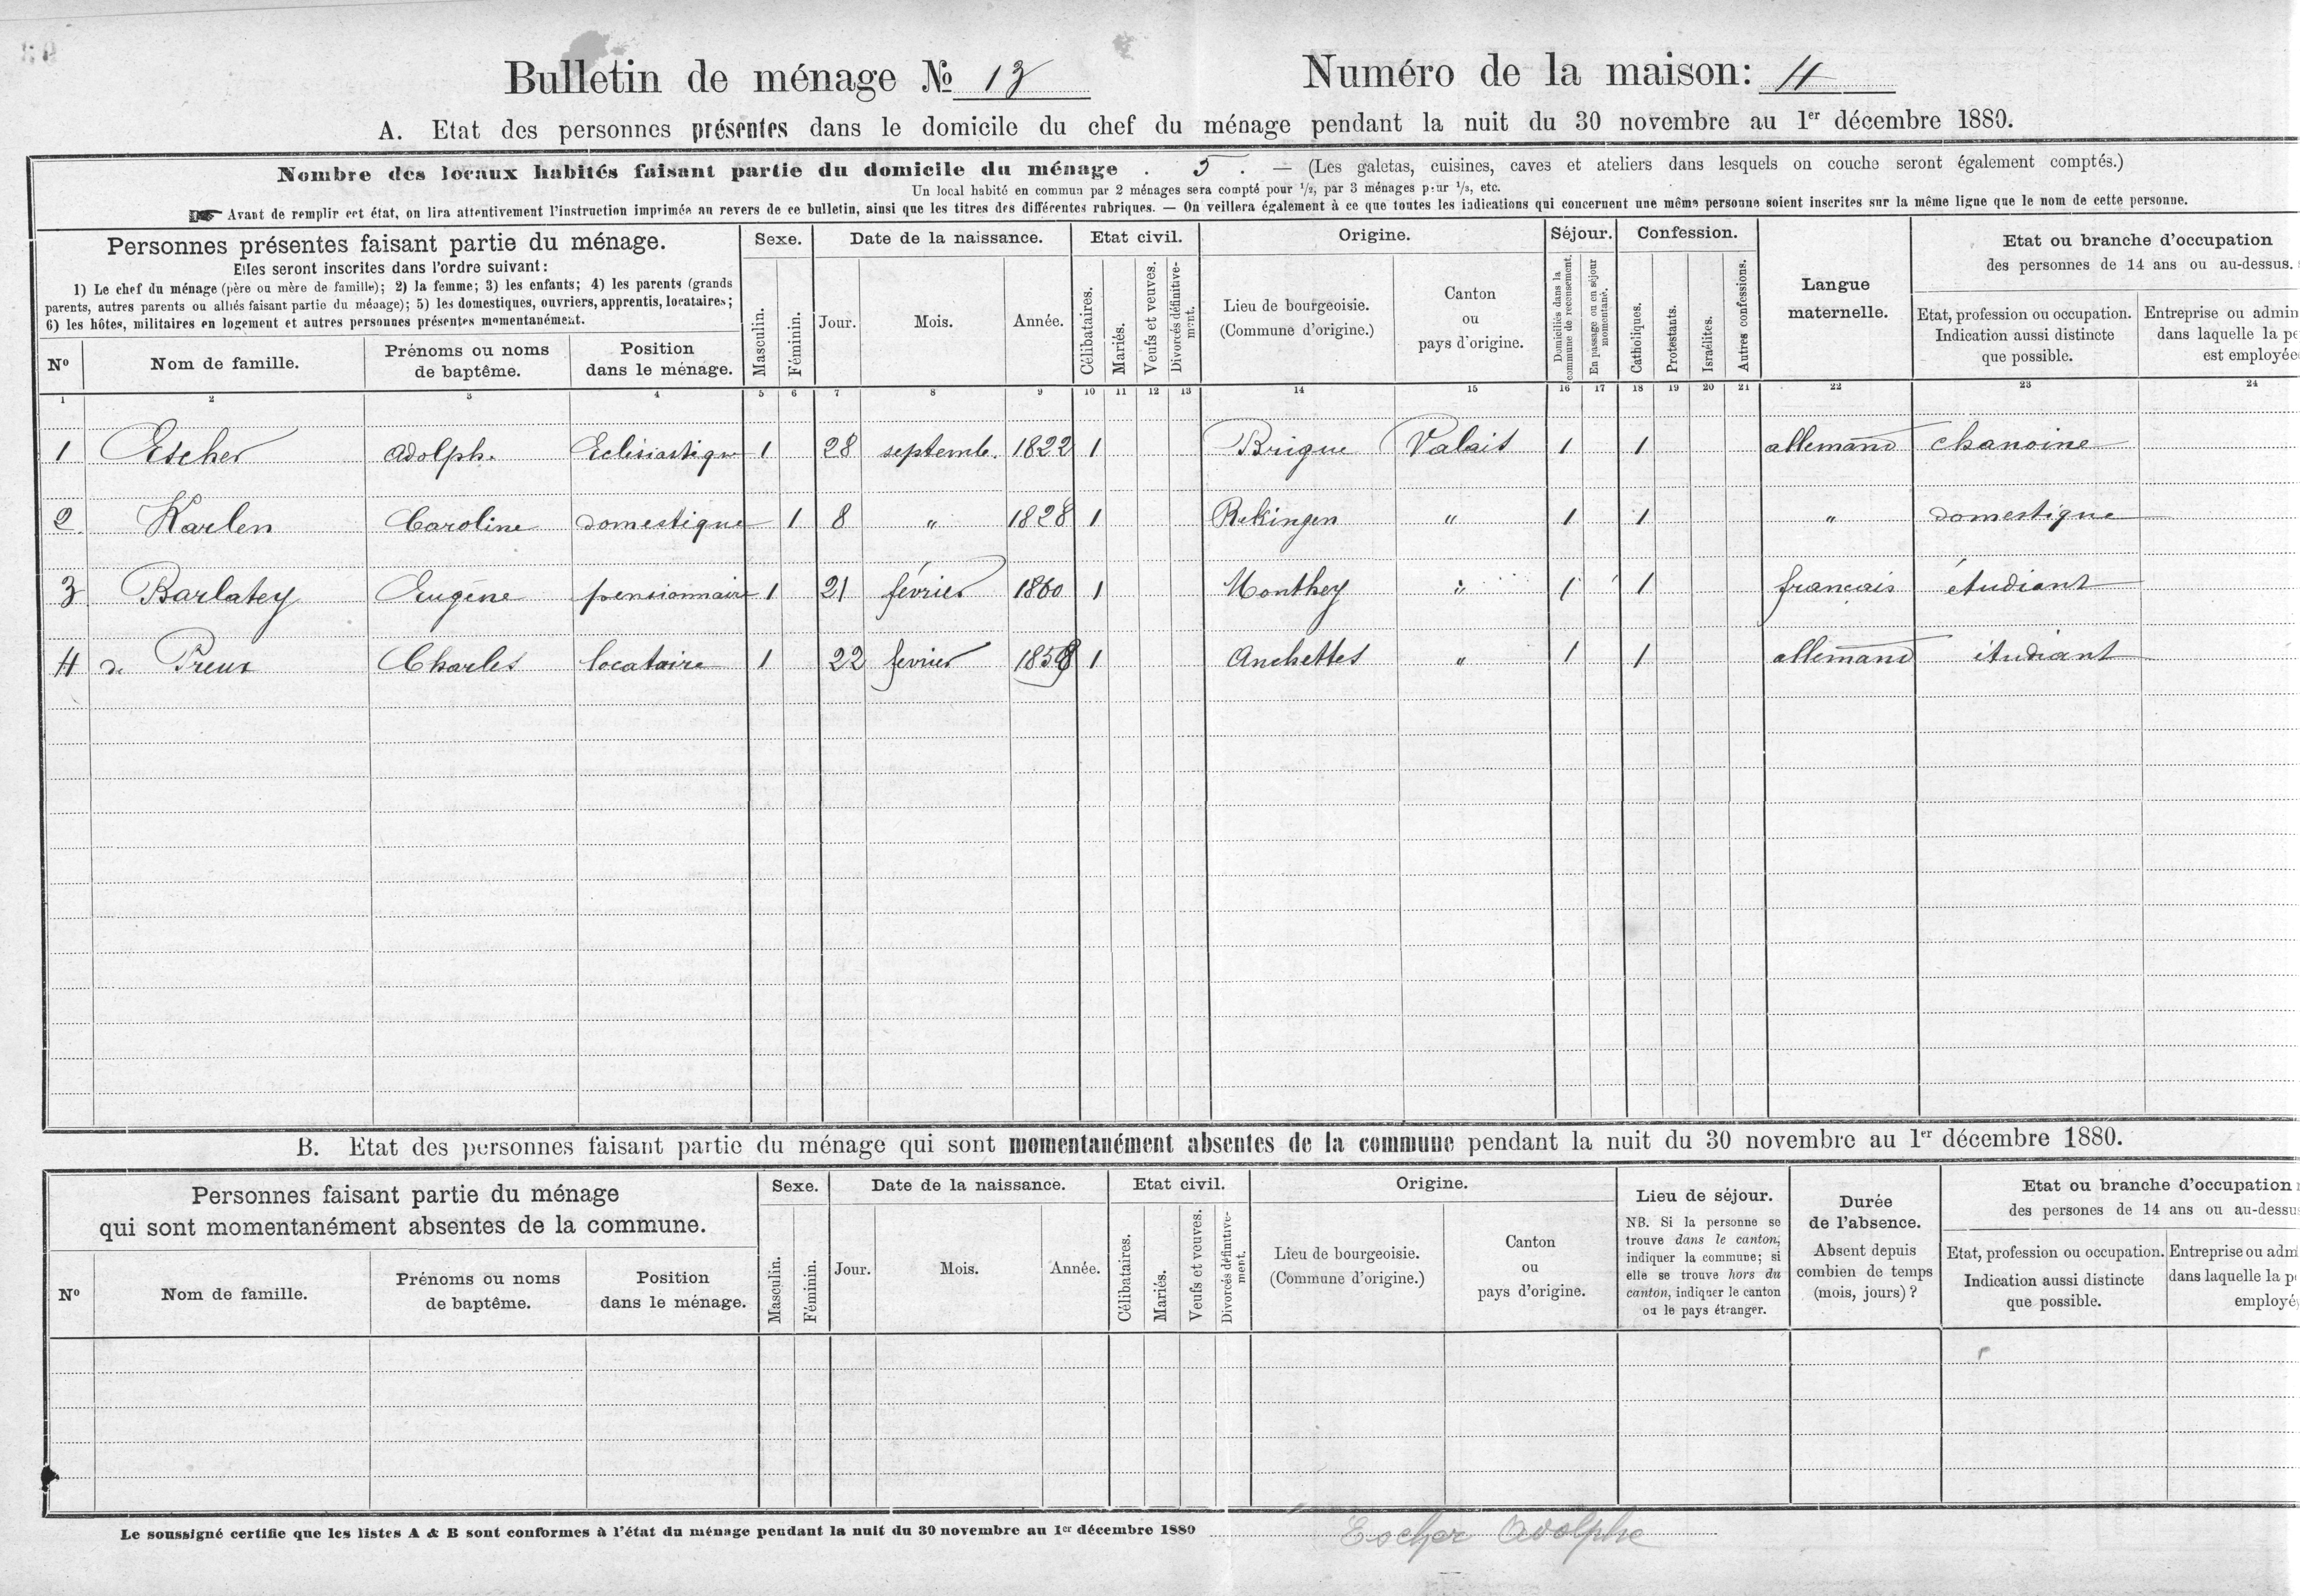 Bulletin de ménage № 13
Numéro de la maison: 4
A. Etat des personnes présentes dans le domicile du chef du ménage pendant la nuit du 30 novembre au 1er décembre 1880.
Nombre des locaux habités faisant partie du domicile du ménage . 5 . — (Les galetas, cuisines, caves et ateliers dans lesquels on couche seront également comptés.)
Un local habité en commun par 2 ménages sera compté pour 1/2, par 3 ménages pour 1/3, etc.
☛ Avant de remplir cet état, on lira attentivement l'instruction imprimée au revers de ce bulletin, ainsi que les titres des différentes rubriques. — On veillera également à ce que toutes les indications qui concernent une même personne soient inscrites sur la même ligne que le nom de cette personne.
Personnes présentes faisant partie du ménage.
Elles seront inscrites dans l'ordre suivant:
1) Le chef du ménage (père ou mère de famille); 2) la femme; 3) les enfants; 4) les parents (grands
parents, autres parents ou alliés faisant partie du ménage); 5) les domestiques, ouvriers, apprentis, locataires;
6) les hôtes, militaires en logement et autres personnes présentes momentanément.
Nº
Nom de famille.
Prénoms ou noms
de baptême.
Position
dans le ménage.
Sexe.
Masculin.
Féminin.
Date de la naissance.
Jour.
Mois.
Année.
Etat civil.
Célibataires.
Mariés.
Veufs et veuves.
Divorcés définitive-
ment.
Origine.
Lieu de bourgeoisie.
(Commune d'origine.)
Canton
ou
pays d'origine.
Séjour.
Domiciliés dans la
commune de recensement.
En passage ou en séjour
momentané.
Confession.
Catholiques.
Protestants.
Israélites.
Autres confessions.
Langue
maternelle.
Etat ou branche d'occupation
des personnes de 14 ans ou au-dessus.
Etat, profession ou occupation.
Indication aussi distincte
que possible.
Entreprise ou admin
dans laquelle la pe
est employée
1 2 3 4 5 6 7 8 9 10 11 12 13 14 15 16 17 18 19 20 21 22 23 24
1 Escher Adolph. Eclésiastique 1 28 septemb. 1822 1 Brigue Valais 1 1 allemand chanoine
2 Karlen Caroline domestique 1 8 " 1828 1 Rekingen " 1 1 " domestique
3 Barlatey Eugène pensionnaire 1 21 février 1860 1 Monthey " 1 1 francais étudiant
4 de Preux Charles locataire 1 22 fevrier 1858 1 Anchettes " 1 1 allemand étudiant
B. Etat des personnes faisant partie du ménage qui sont momentanément absentes de la commune pendant la nuit du 30 novembre au 1er décembre 1880.
Personnes faisant partie du ménage
qui sont momentanément absentes de la commune.
Nº
Nom de famille.
Prénoms ou noms
de baptême.
Position
dans le ménage.
Sexe.
Masculin.
Féminin.
Date de la naissance.
Jour.
Mois.
Année.
Etat civil.
Célibataires.
Mariés.
Veufs et veuves.
Divorcés définitive-
ment.
Origine.
Lieu de bourgeoisie.
(Commune d'origine.)
Canton
ou
pays d'origine.
Lieu de séjour.
NB. Si la personne se
trouve dans le canton,
indiquer la commune; si
elle se trouve hors du
canton, indiquer le canton
ou le pays étranger.
Durée
de l'absence.
Absent depuis
combien de temps
(mois, jours) ?
Etat ou branche d'occupation
des persones de 14 ans ou au-dessu
Etat, profession ou occupation.
Indication aussi distincte
que possible.
Entreprise ou adm
dans laquelle la p
employé
Le soussigné certifie que les listes A & B sont conformes à l'état du ménage pendant la nuit du 30 novembre au 1er décembre 1880 Escher Adolphe